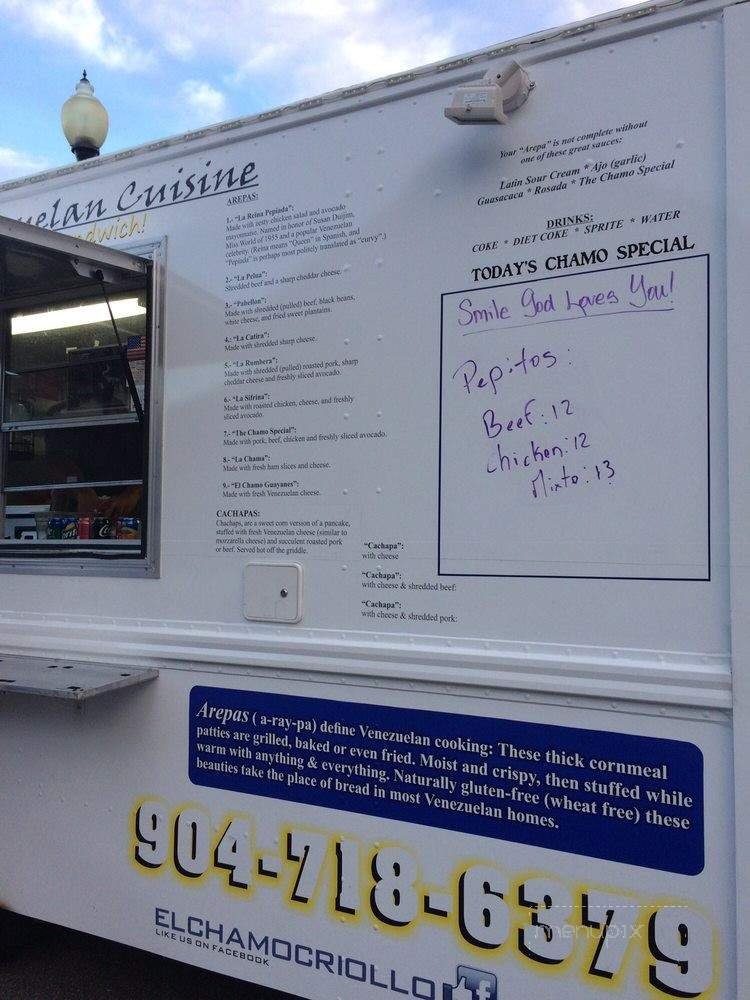 elan Cuisine
dwich!
AREPAS:
1.- "La Reina Pepiada":
Made with zesty chicken salad and avocado
mayonnaise. Named in honor of Susan Duijim,
Miss World of 1955 and a popular Venezuelan
celebrity. (Reina means "Queen" in Spanish, and
"Pepiada" is perhaps most politely translated as "curvy".)
2.- "La Pelua":
Shredded beef and a sharp cheddar cheese.
3.- "Pabellon":
Made with shredded (pulled) beef, black beans,
white cheese, and fried sweet plantains.
4.- "La Catira":
Made with shredded sharp cheese.
5.- "La Rumbera":
Made with shredded (pulled) roasted pork, sharp
cheddar cheese and freshly sliced avocado.
6.- "La Sifrina":
Made with roasted chicken, cheese, and freshly
sliced avocado.
7.- "The Chamo Special":
Made with pork, beef, chicken and freshly sliced avocado.
8.- "La Chama":
Made with fresh ham slices and cheese.
9.- "El Chamo Guayanes":
Made with fresh Venezuelan cheese.
CACHAPAS:
Chachaps, are a sweet corn version of a pancake,
stuffed with fresh Venezuelan cheese (similar to
mozzarella cheese) and succulent roasted pork
or beef. Served hot off the griddle.
"Cachapa":
with cheese
"Cachapa":
with cheese & shredded beef:
"Cachapa":
with cheese & shredded pork:
Your "Arepa" is not complete without
one of these great sauces:
Latin Sour Cream * Ajo (garlic)
Guasacaca * Rosada * The Chamo Special
DRINKS:
COKE * DIET COKE * SPRITE * WATER
TODAY'S CHAMO SPECIAL
Smile God Loves You!
Pepitos:
Beef: 12
chicken: 12
Mixto: 13
Arepas ( a-ray-pa) define Venezuelan cooking: These thick cornmeal
patties are grilled, baked or even fried. Moist and crispy, then stuffed while
warm with anything & everything. Naturally gluten-free (wheat free) these
beauties take the place of bread in most Venezuelan homes.
904-718-6379
ELCHAMOCRIOLLO
LIKE US ON FACEBOOK
menupix